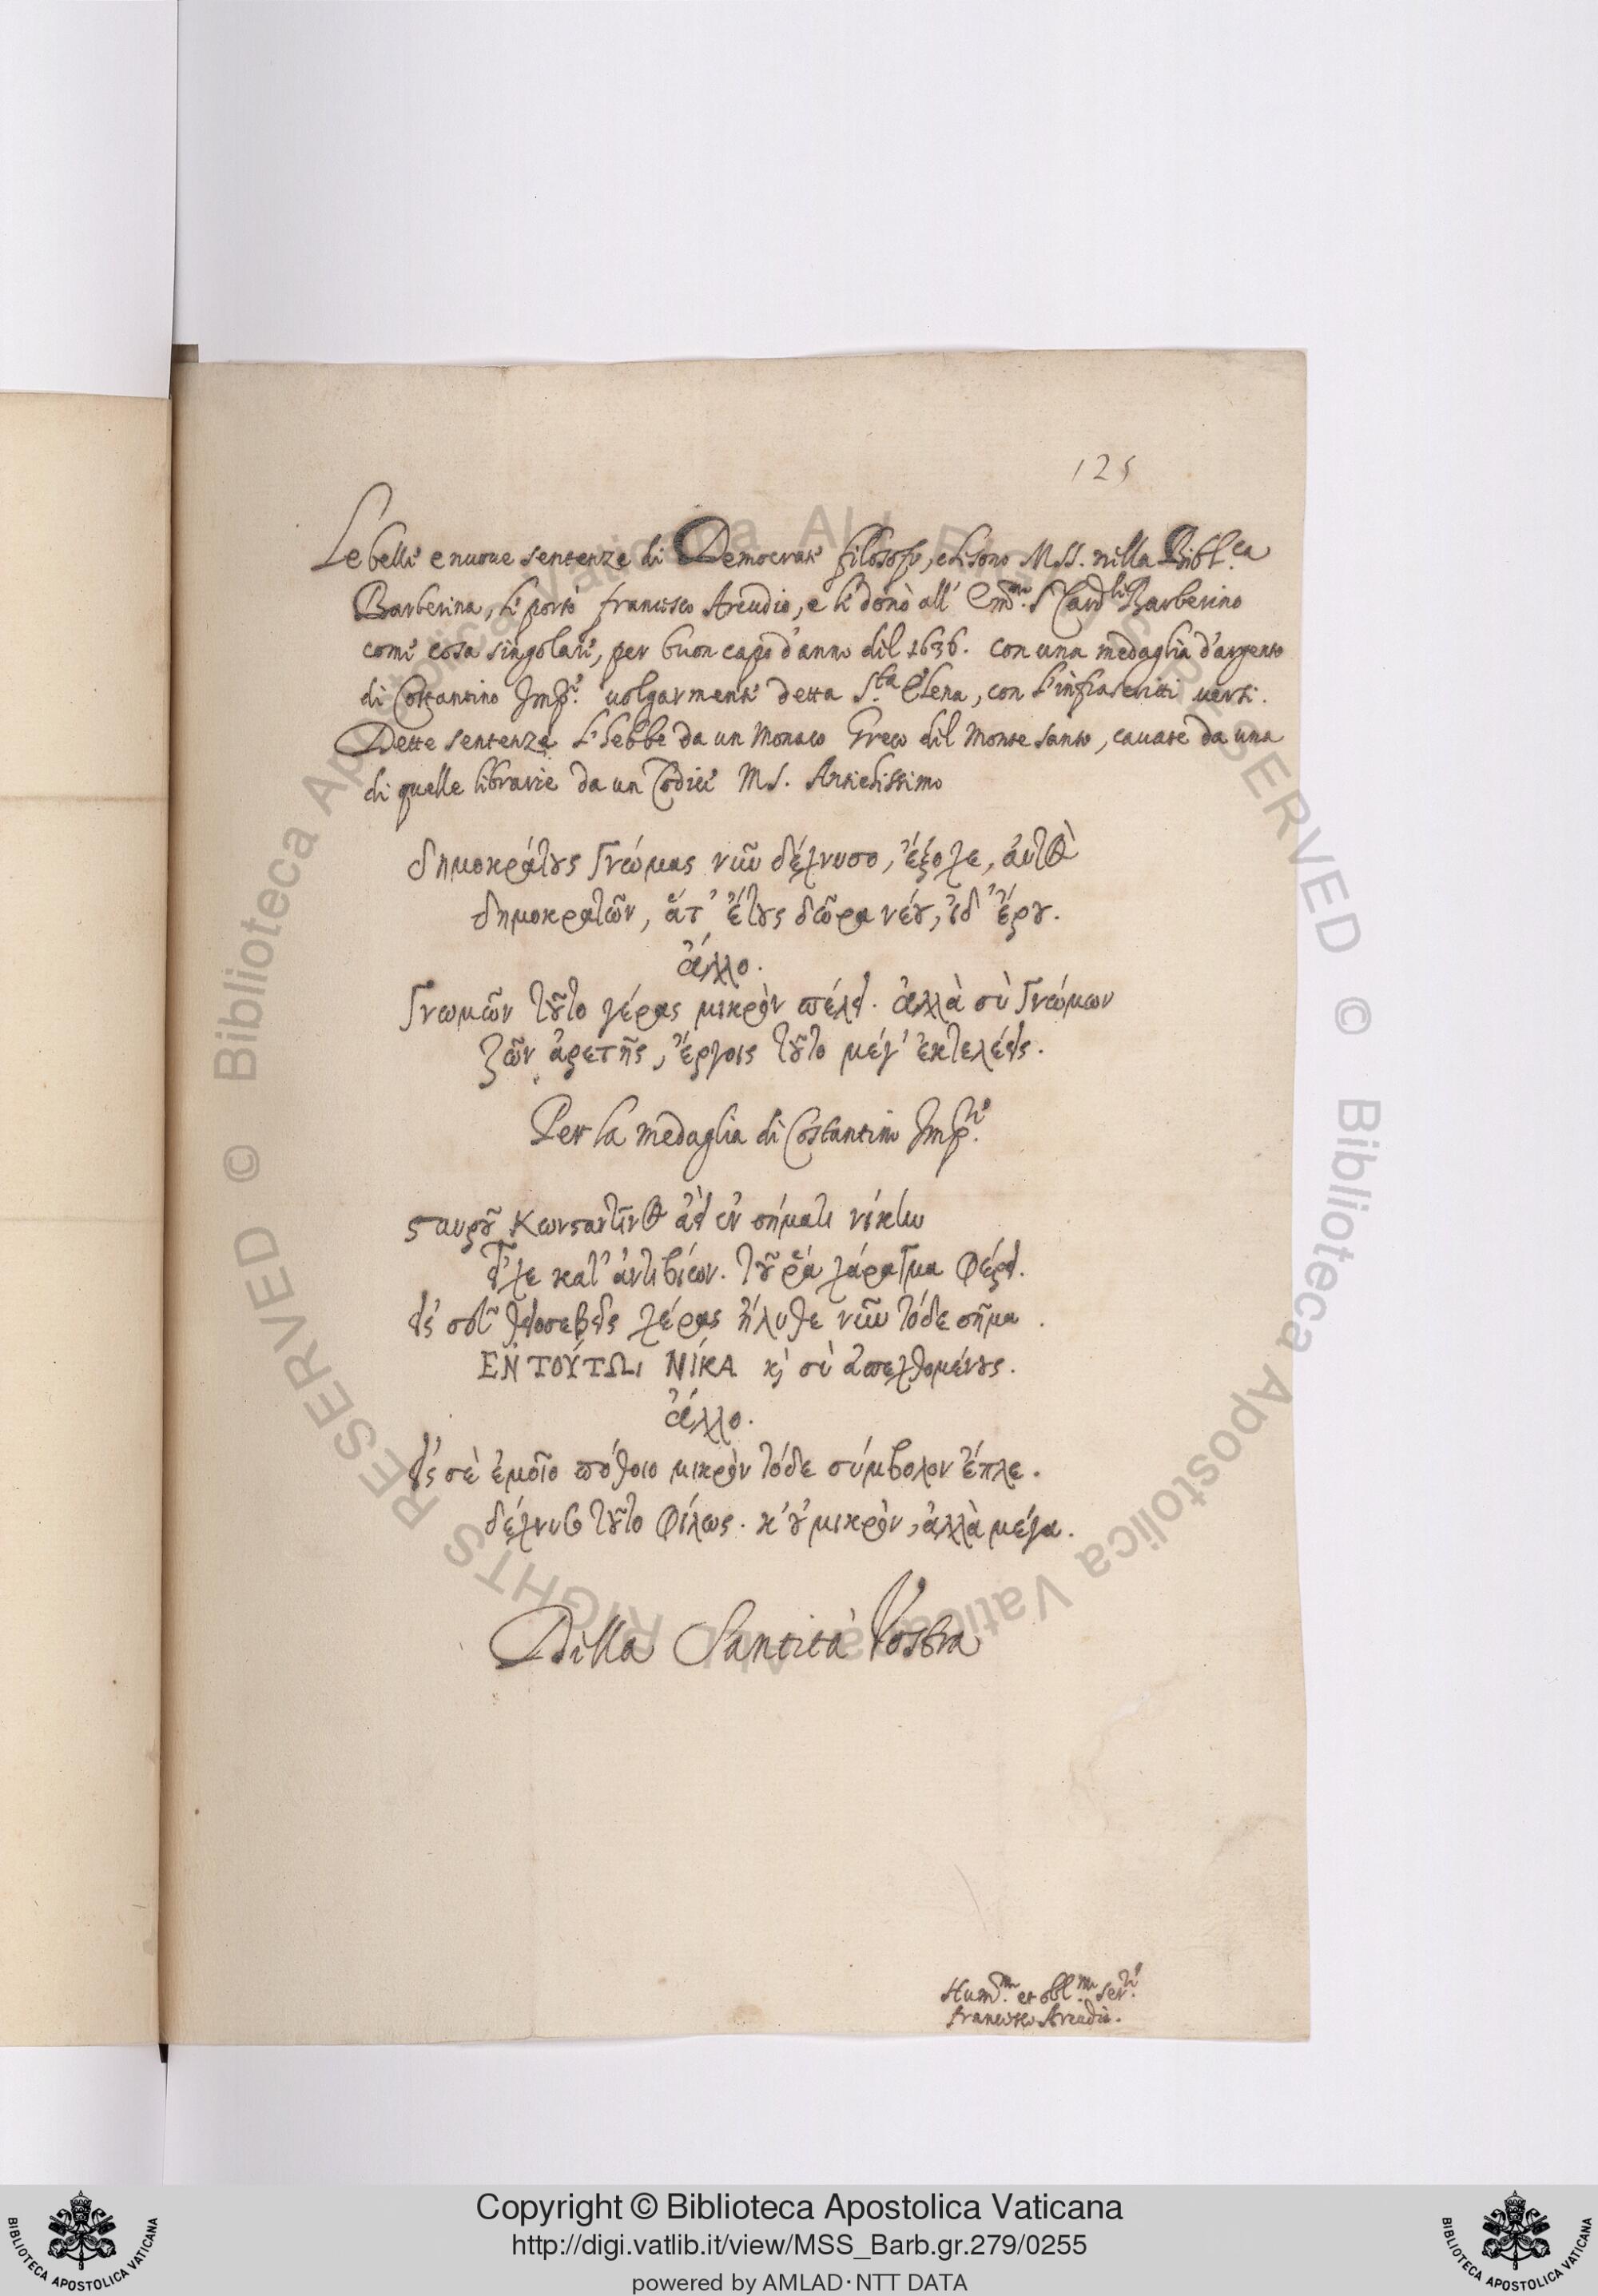 125
Le belle e nuove sentenze di Democrate filosofo, che sono MSS. nella Bibl.ca
Barberina, le portò francesco Arcudio, e le donò all' Em.mo S. Card.le Barberino
come cosa singolare, per buon capo d'anno del 1636. con una medaglia d'argento
di Costantino Imp.re uolgarmente detta S.ta Elena, con l'infrascritti uersi.
Dette sentenze l'hebbe da un Monaco Greco del Monte Santo, cauate da una
di quelle librarie da un Codice MS. Antichissimo
δημοκράτους Γνώμας νῦν δέχνυσο, ἔξοχε, αὐτὸς
δημοκρατῶν, ἅτ' ἔτους δῶρα νέου, ἰδ' ἔργου.
ἄλλο.
Γνωμῶν τοῦτο γέρας μικρὸν πέλει. ἀλλὰ σὺ Γνώμων
ζῶν ἀρετῆς, ἔργοις τοῦτο μέγ' ἐκτελέεις.
Per la medaglia di Costantino Imp.re
σταυροῦ Κωνσταντῖνος ἀεὶ ἐν σήματι νίκην
εἷλε κατ' ἀντιβίων. τοῦ ῥά χάραγμα φέρει.
εἰς θειοσεβεῖς χέρας ἤλυθε νῦν τόδε σῆμα.
ΕΝ ΤΟΎΤΩι ΝΊΚΑ κ̀ σὺ ἀπεχθομένους.
ἄλλο.
εἰς σὲ ἐμοῖο πόθοιο μικρὸν τόδε σύμβολον ἔπλε.
δέχνυσο τοῦτο φίλως. κ' οὐ μικρὸν, ἀλλὰ μέγα.
Della Santità Vostra
Hum.mo et obl.mo ser.re
francesco Arcudio.
Copyright © Biblioteca Apostolica Vaticana
http://digi.vatlib.it/view/MSS_Barb.gr.279/0255
powered by AMLAD·NTT DATA
BIBLIOTECA APOSTOLICA VATICANA
BIBLIOTECA APOSTOLICA VATICANA
© Biblioteca Apostolica Vaticana ALL RIGHTS RESERVED © Biblioteca Apostolica Vaticana ALL RIGHTS RESERVED